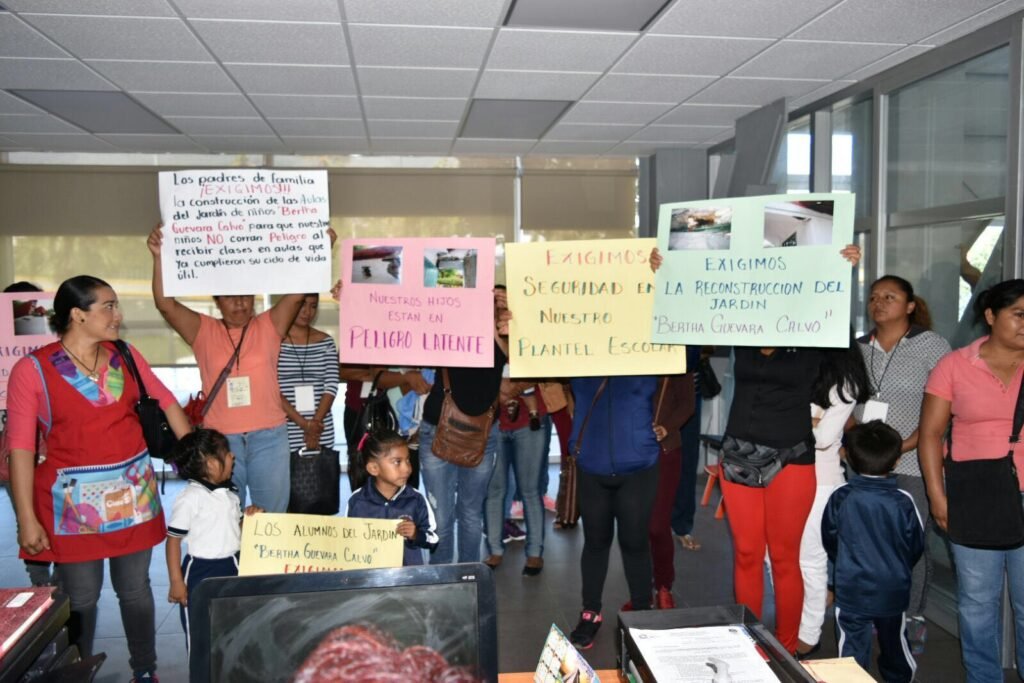 Los padres de familia
¡EXIGIMOS!!!
la construcción de las Aulas
del Jardín de niños "Bertha
Guevara Calvo" para que nuestros
niños NO corran Peligro al
recibir clases en aulas que
Ya cumplieron su ciclo de vida
útil.
NUESTROS HIJOS
ESTAN EN
PELIGRO LATENTE
EXIGIMOS
SEGURIDAD EN
NUESTRO
PLANTEL ESCOLAR
EXIGIMOS
LA RECONSTRUCCION DEL
JARDIN
"BERTHA GUEVARA CALVO"
LOS ALUMNOS DEL JARDIN
"BERTHA GUEVARA CALVO"
EXIGIMOS